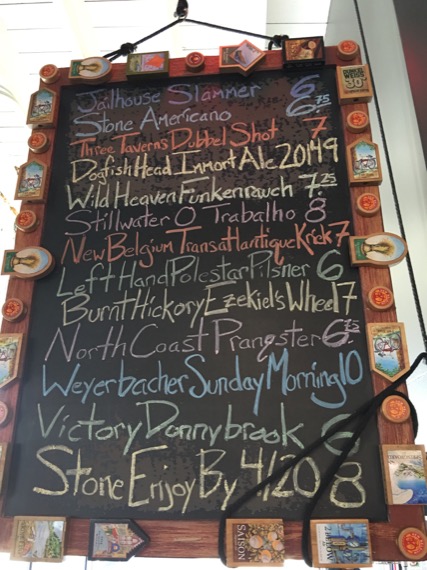 Jailhouse Slammer 6
Stone Americano 6.75
Three Taverns Dubbel Shot 7
Dogfish Head Immort Ale 2014 9
Wild Heaven Funkenrauch 7.25
Stillwater O Trabalho 8
New Belgium Transatlantique Kriek 7
Left Hand Polestar Pilsner 6
Burnt Hickory Ezekiel's Wheel 7
North Coast Pranqster 6.75
Weyerbacher Sunday Morning 10
Victory Donnybrook 6
Stone Enjoy By 4/20 8
SAISON